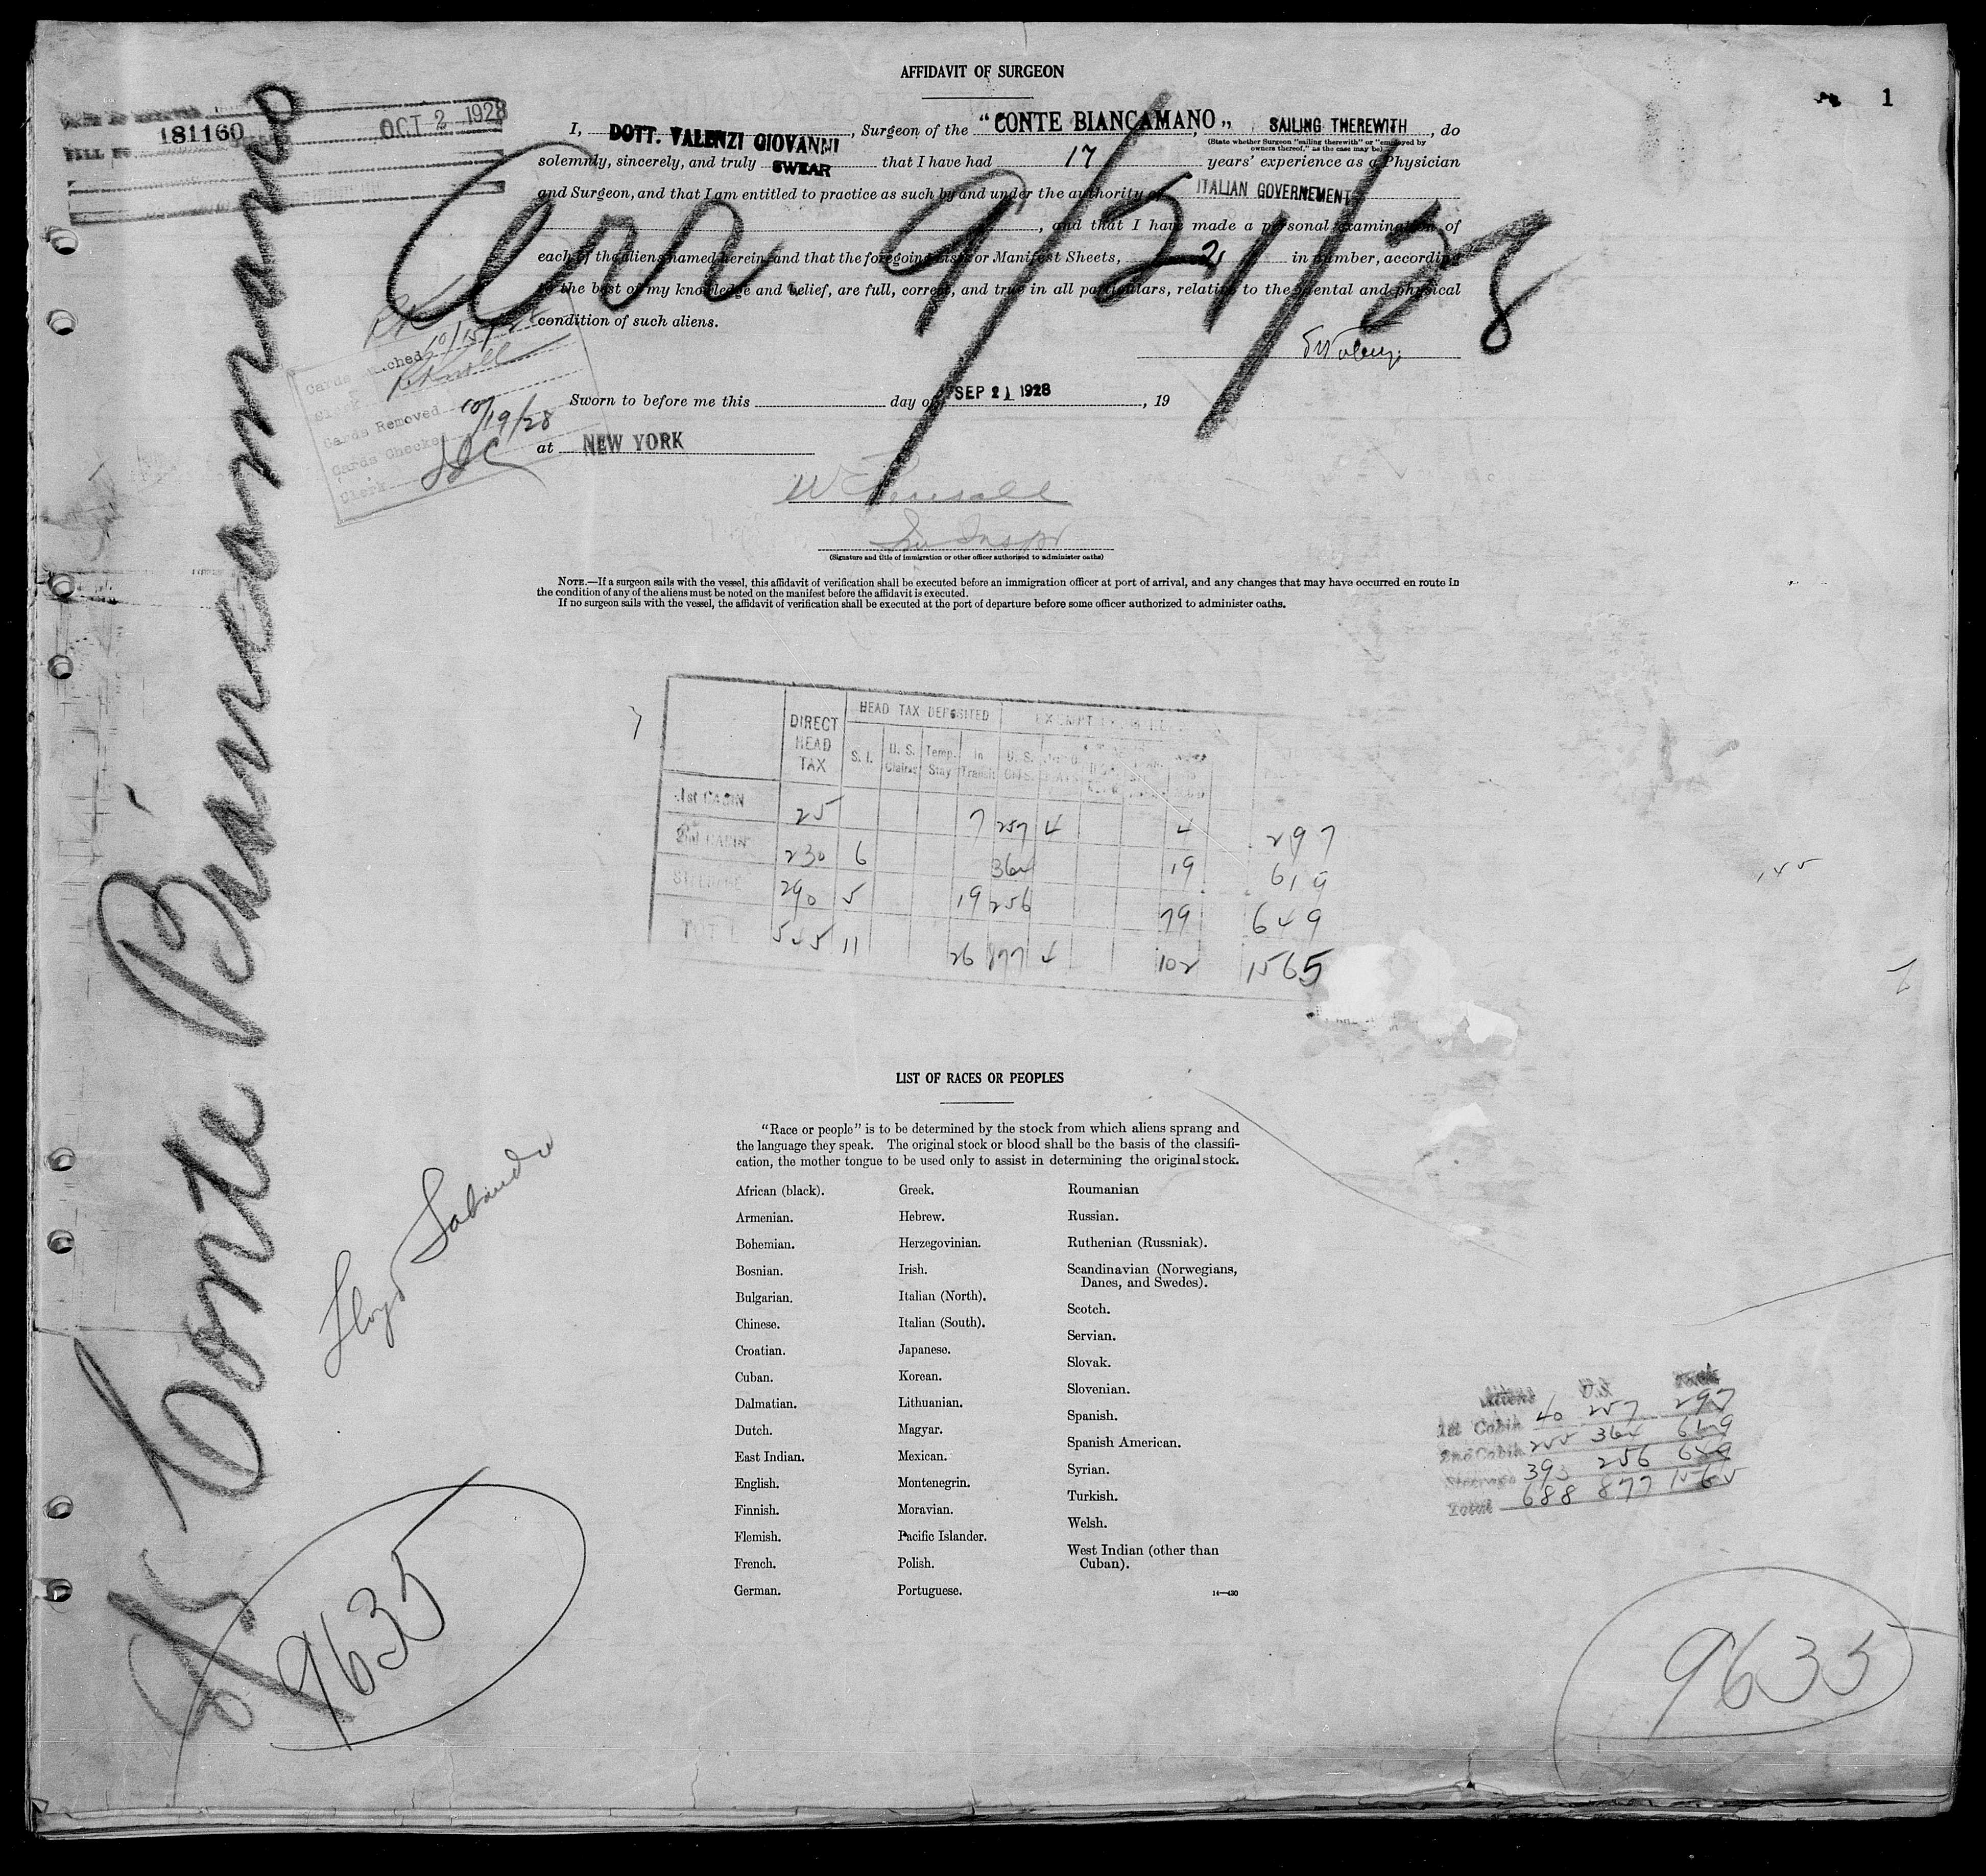 AFFIDAVIT OF SURGEON
1
181160 OCT 2 1928
BILL NO
I, DOTT. VALENZI GIOVANNI, Surgeon of the "CONTE BIANCAMANO", SAILING THEREWITH, do
(State whether Surgeon "sailing therewith" or "employed by owners thereof," as the case may be)
solemnly, sincerely, and truly SWEAR that I have had 17 years' experience as a Physician
and Surgeon, and that I am entitled to practice as such by and under the authority of ITALIAN GOVERNEMENT
, and that I have made a personal examination of
each of the aliens named herein and that the foregoing Lists or Manifest Sheets, 21 in number, according
to the best of my knowledge and belief, are full, correct, and true in all particulars, relative to the mental and physical
condition of such aliens.
Arr 9/21/28
Cards Removed 10/19/28
Cards Checked
Clerk
Sworn to before me this day of SEP 21 1928, 19
at NEW YORK
(Signature and title of immigration or other officer authorized to administer oaths)
NOTE.—If a surgeon sails with the vessel, this affidavit of verification shall be executed before an immigration officer at port of arrival, and any changes that may have occurred en route in
the condition of any of the aliens must be noted on the manifest before the affidavit is executed.
If no surgeon sails with the vessel, the affidavit of verification shall be executed at the port of departure before some officer authorized to administer oaths.
SS Conte Biancamano
Lloyd Sabaudo
DIRECT HEAD TAX HEAD TAX DEPOSITED
S. I. U. S. Claims Temp. Stay In Transit U. S.
1st CABIN 25 7 257 4 4 297
2nd CABIN 230 6 364 19 619
STEERAGE 290 5 19 256 79 649
TOTAL 545 11 26 877 4 102 1565
LIST OF RACES OR PEOPLES
"Race or people" is to be determined by the stock from which aliens sprang and
the language they speak. The original stock or blood shall be the basis of the classifi-
cation, the mother tongue to be used only to assist in determining the original stock.
African (black).
Armenian.
Bohemian.
Bosnian.
Bulgarian.
Chinese.
Croatian.
Cuban.
Dalmatian.
Dutch.
East Indian.
English.
Finnish.
Flemish.
French.
German.
Greek.
Hebrew.
Herzegovinian.
Irish.
Italian (North).
Italian (South).
Japanese.
Korean.
Lithuanian.
Magyar.
Mexican.
Montenegrin.
Moravian.
Pacific Islander.
Polish.
Portuguese.
Roumanian
Russian.
Ruthenian (Russniak).
Scandinavian (Norwegians,
Danes, and Swedes).
Scotch.
Servian.
Slovak.
Slovenian.
Spanish.
Spanish American.
Syrian.
Turkish.
Welsh.
West Indian (other than
Cuban).
14—430
Aliens U.S. Total
1st Cabin 40 257 297
2nd Cabin 255 364 619
Steerage 393 256 649
Total 688 877 1565
9635
9635